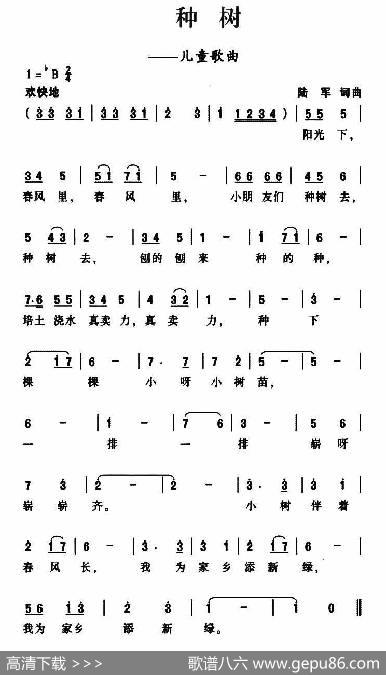 种 树
——儿童歌曲
1=♭B 2/4
欢快地 陆 军 词曲
( 3 3 3 1 | 3 3 3 1 | 2 3 | 1 2 3 4 ) | 5 5 5 |
阳光 下,
3 4 5 | 5 1 7 1 | 5 - | 6 6 6 6 | 5 4 5 |
春风 里, 春 风 里, 小朋 友们 种树 去,
5 4 3 | 2 - | 3 4 5 | 1 - | 1 7 1 | 6 - |
种 树 去, 刨的 刨来 种 的 种,
7·6 5 5 | 3 4 5 | 4 3 2 | 1 - | 5 - | 3 - |
培土 浇水 真卖 力,真 卖 力, 种 下
2 1 7 | 6 - | 7· 7 | 7 2 | 5 - | 5 - |
棵 棵 小 呀 小 树 苗,
6 - | 1 - | 7 6 | 3 - | 5 6 |
一 排 一 排 崭 呀
7 3 | 2 - | 2 - | 3· 3 | 3 1 |
崭 崭 齐。 小 树 伴 着
2 1 7 | 6 - | 3· 3 | 3 1 | 2 1 7 | 6 - |
春 风 长, 我 为 家 乡 添 新 绿,
5 6 1 3 | 2 3 | 6 - | 6 0 ‖
我为 家乡 添 新 绿。
高清下载 >>> 歌谱八六 www.gepu86.com